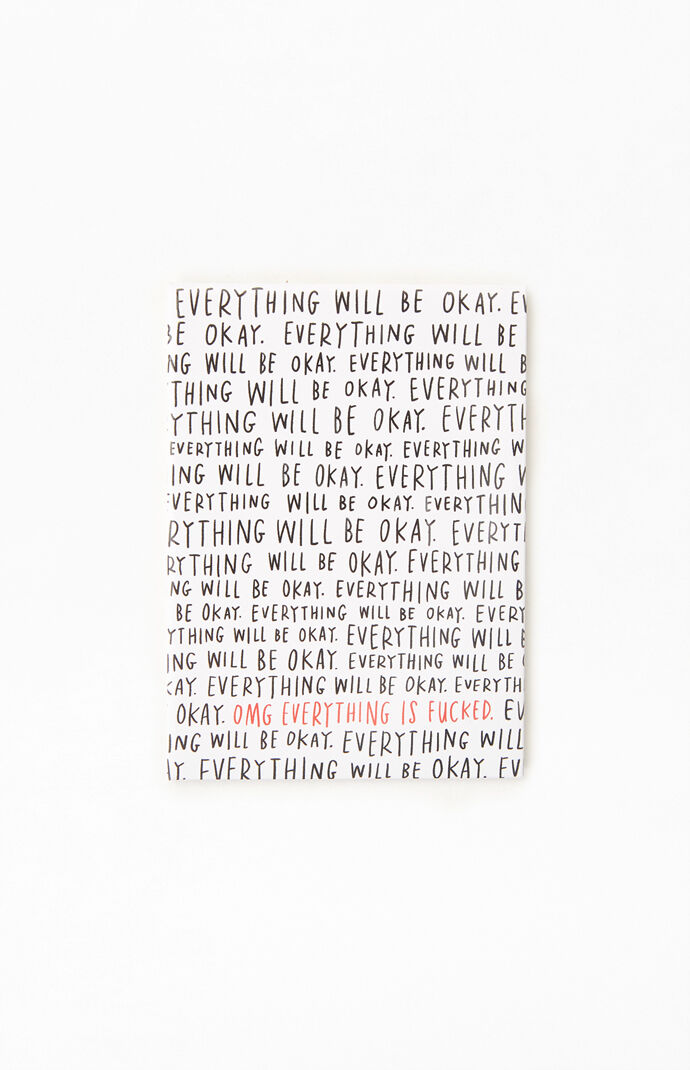 EVERYTHING WILL BE OKAY. EV
BE OKAY. EVERYTHING WILL BE
NG WILL BE OKAY. EVERYTHING WILL B
THING WILL BE OKAY. EVERYTHING
YTHING WILL BE OKAY. EVERYTH
EVERYTHING WILL BE OKAY. EVERYTHING W
ING WILL BE OKAY. EVERYTHING W
EVERYTHING WILL BE OKAY. EVERYTHIN
RYTHING WILL BE OKAY. EVERYTI
RYTHING WILL BE OKAY. EVERYTHING
NG WILL BE OKAY. EVERYTHING WILL B
BE OKAY. EVERYTHING WILL BE OKAY. EVERY
YTHING WILL BE OKAY. EVERYTHING WILL B
ING WILL BE OKAY. EVERYTHING WILL BE
KAY. EVERYTHING WILL BE OKAY. EVERYTH
OKAY. OMG EVERYTHING IS FUCKED. EV
ING WILL BE OKAY. EVERYTHING WILL
AY. EVERYTHING WILL BE OKAY. EV